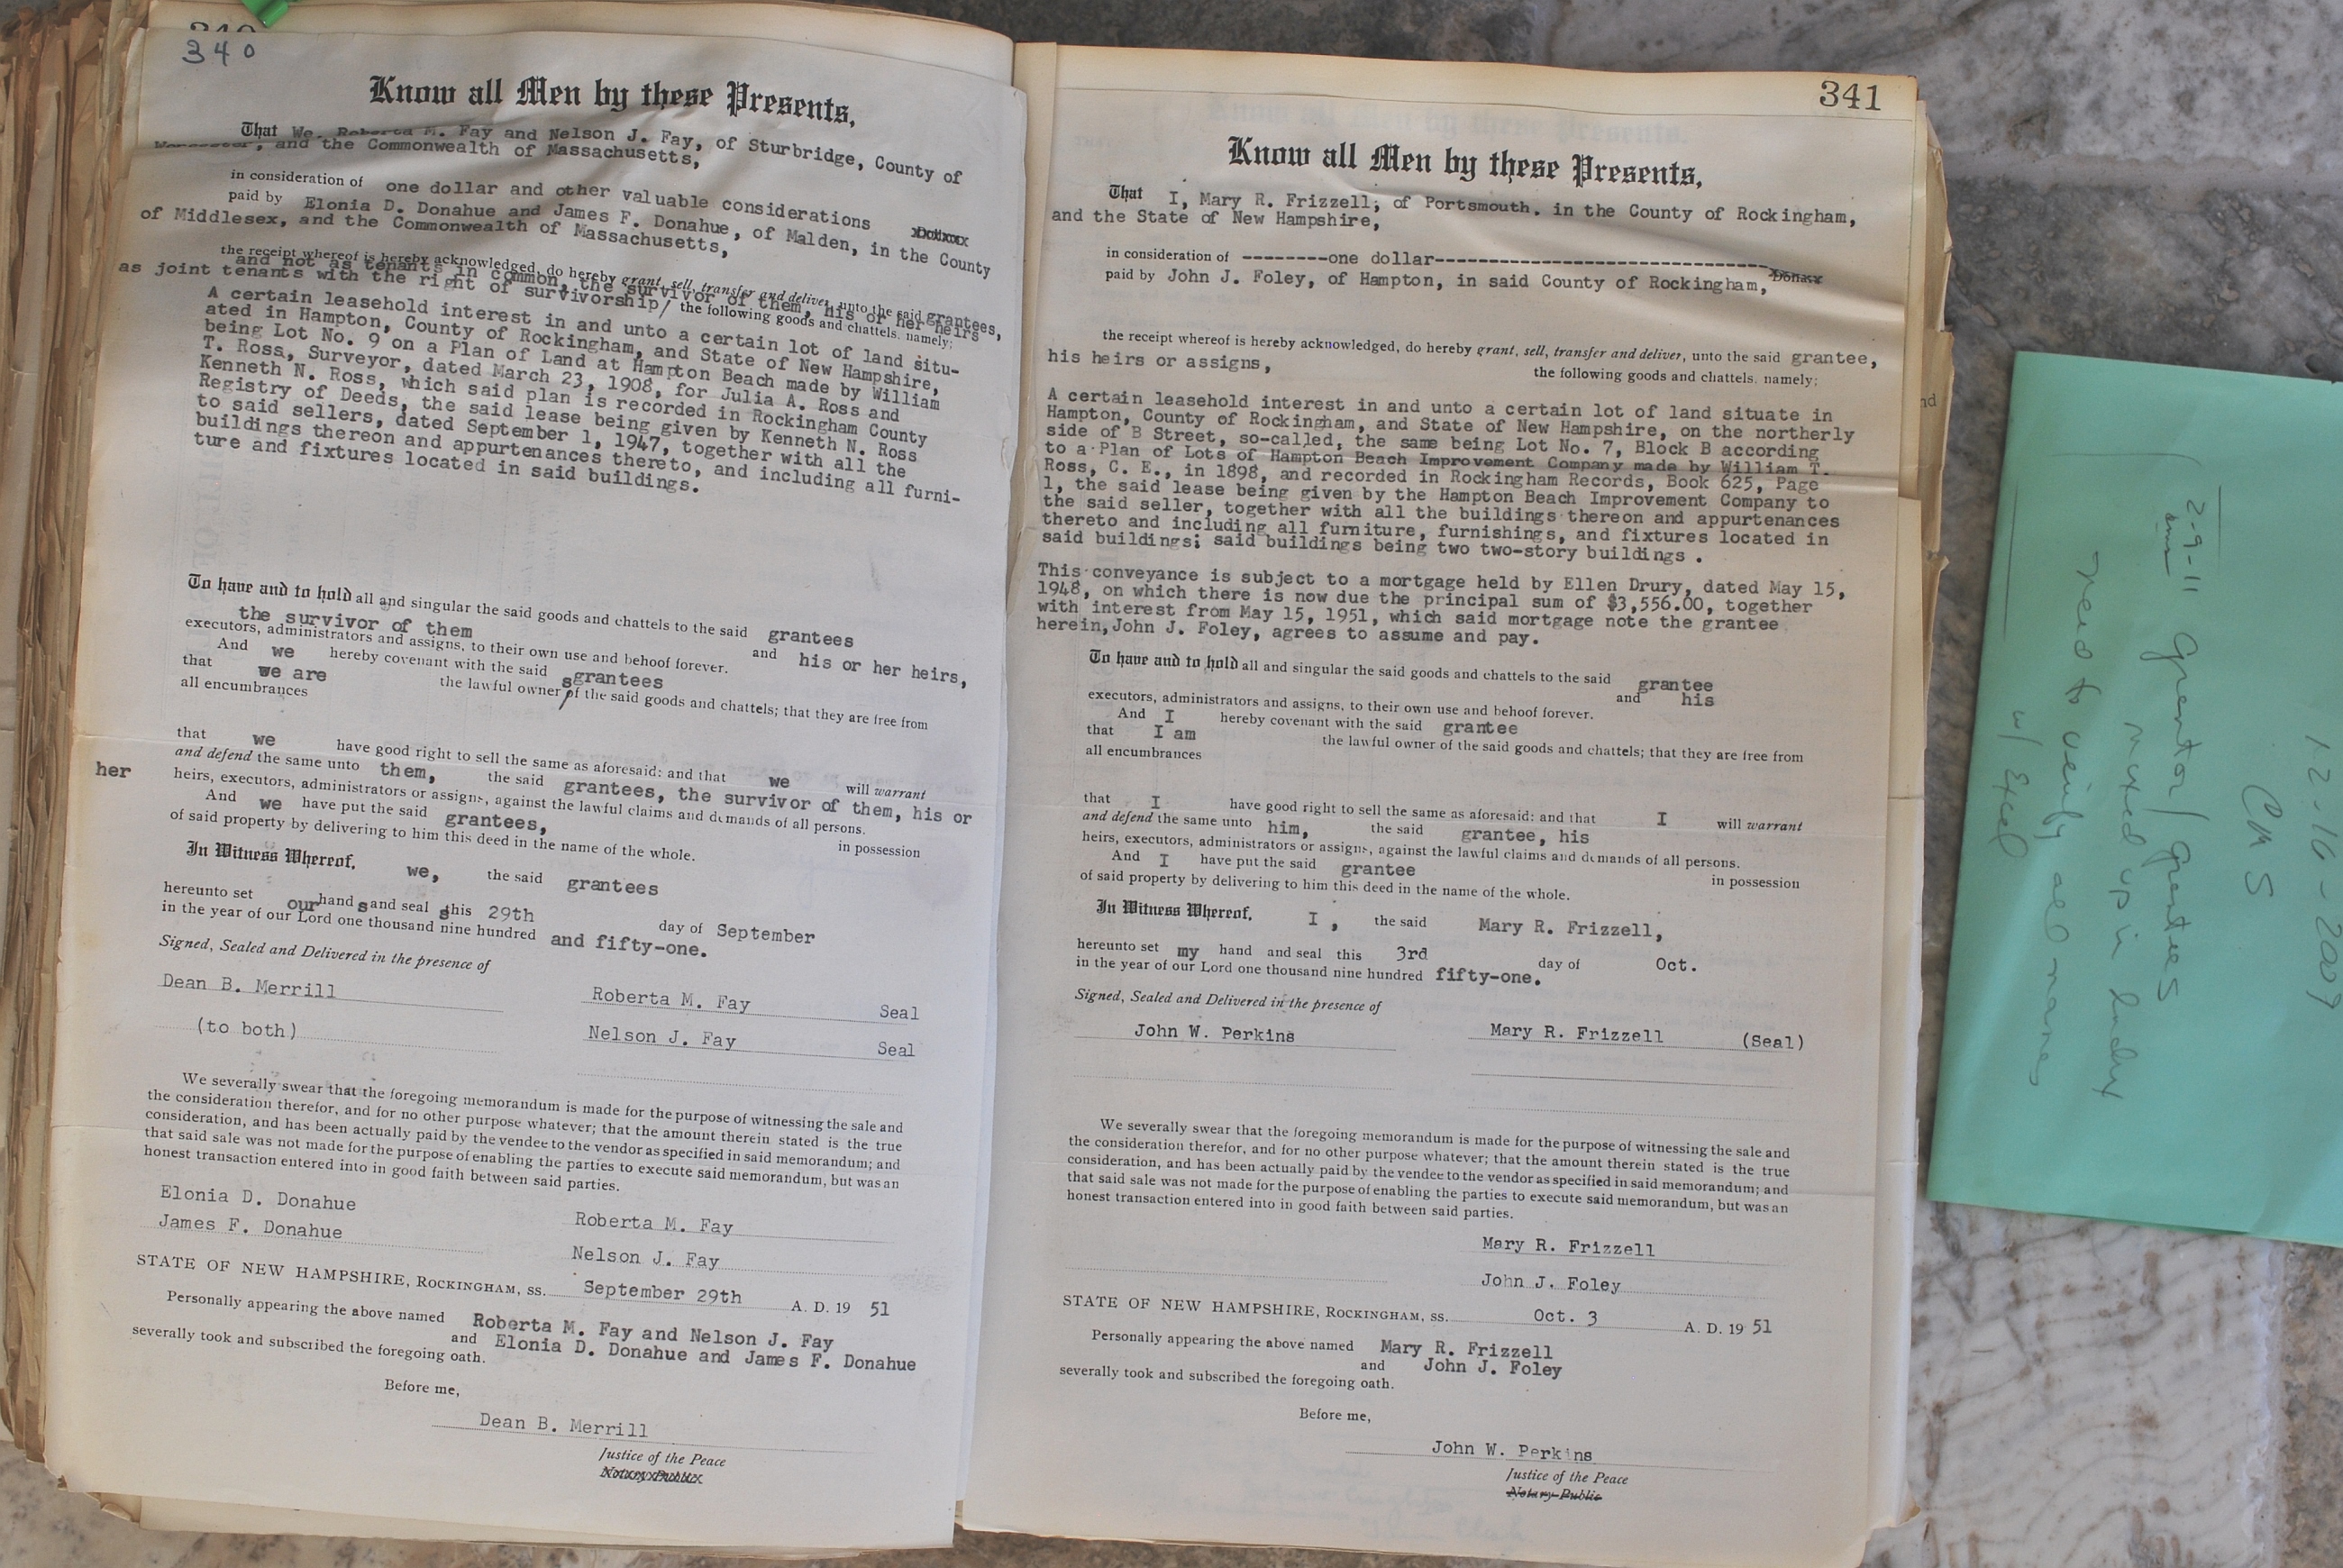 340
340
Know all Men by these Presents,
That We, Roberta M. Fay and Nelson J. Fay, of Sturbridge, County of
Worcester, and the Commonwealth of Massachusetts,
in consideration of one dollar and other valuable considerations Dollars
paid by Elonia D. Donahue and James F. Donahue, of Malden, in the County
of Middlesex, and the Commonwealth of Massachusetts,
the receipt whereof is hereby acknowledged, do hereby grant, sell, transfer and deliver, unto the said grantees,
and not as tenants in common, the survivor of them, his or her heirs
as joint tenants with the right of survivorship/ the following goods and chattels. namely;
A certain leasehold interest in and unto a certain lot of land situ-
ated in Hampton, County of Rockingham, and State of New Hampshire,
being Lot No. 9 on a Plan of Land at Hampton Beach made by William
T. Ross, Surveyor, dated March 23, 1908, for Julia A. Ross and
Kenneth N. Ross, which said plan is recorded in Rockingham County
Registry of Deeds, the said lease being given by Kenneth N. Ross
to said sellers, dated September 1, 1947, together with all the
buildings thereon and appurtenances thereto, and including all furni-
ture and fixtures located in said buildings.
To have and to hold all and singular the said goods and chattels to the said grantees
the survivor of them and his or her heirs,
executors, administrators and assigns, to their own use and behoof forever.
And we hereby covenant with the said grantees
that we are the lawful owners of the said goods and chattels; that they are free from
all encumbrances
that we have good right to sell the same as aforesaid: and that we will warrant
and defend the same unto them, the said grantees, the survivor of them, his or
her heirs, executors, administrators or assigns, against the lawful claims and demands of all persons.
And we have put the said grantees, in possession
of said property by delivering to him this deed in the name of the whole.
In Witness Whereof, we, the said grantees
hereunto set our hand s and seal s this 29th day of September
in the year of our Lord one thousand nine hundred and fifty-one.
Signed, Sealed and Delivered in the presence of
Dean B. Merrill Roberta M. Fay Seal
(to both) Nelson J. Fay Seal
We severally swear that the foregoing memorandum is made for the purpose of witnessing the sale and
the consideration therefor, and for no other purpose whatever; that the amount therein stated is the true
consideration, and has been actually paid by the vendee to the vendor as specified in said memorandum; and
that said sale was not made for the purpose of enabling the parties to execute said memorandum, but was an
honest transaction entered into in good faith between said parties.
Elonia D. Donahue Roberta M. Fay
James F. Donahue Nelson J. Fay
STATE OF NEW HAMPSHIRE, ROCKINGHAM, ss. September 29th A. D. 19 51
Personally appearing the above named Roberta M. Fay and Nelson J. Fay
and Elonia D. Donahue and James F. Donahue
severally took and subscribed the foregoing oath.
Before me,
Dean B. Merrill
Justice of the Peace
Notary Public
341
Know all Men by these Presents,
That I, Mary R. Frizzell, of Portsmouth. in the County of Rockingham,
and the State of New Hampshire,
in consideration of --------one dollar---------------------------------- Dollars
paid by John J. Foley, of Hampton, in said County of Rockingham,
the receipt whereof is hereby acknowledged, do hereby grant, sell, transfer and deliver, unto the said grantee,
his heirs or assigns, the following goods and chattels. namely;
A certain leasehold interest in and unto a certain lot of land situate in
Hampton, County of Rockingham, and State of New Hampshire, on the northerly
side of B Street, so-called, the same being Lot No. 7, Block B according
to a Plan of Lots of Hampton Beach Improvement Company made by William T.
Ross, C. E., in 1898, and recorded in Rockingham Records, Book 625, Page
1, the said lease being given by the Hampton Beach Improvement Company to
the said seller, together with all the buildings thereon and appurtenances
thereto and including all furniture, furnishings, and fixtures located in
said buildings; said buildings being two two-story buildings .
This conveyance is subject to a mortgage held by Ellen Drury, dated May 15,
1948, on which there is now due the principal sum of $3,556.00, together
with interest from May 15, 1951, which said mortgage note the grantee
herein, John J. Foley, agrees to assume and pay.
To have and to hold all and singular the said goods and chattels to the said grantee
and his
executors, administrators and assigns, to their own use and behoof forever.
And I hereby covenant with the said grantee
that I am the lawful owner of the said goods and chattels; that they are free from
all encumbrances
that I have good right to sell the same as aforesaid: and that I will warrant
and defend the same unto him, the said grantee, his
heirs, executors, administrators or assigns, against the lawful claims and demands of all persons.
And I have put the said grantee in possession
of said property by delivering to him this deed in the name of the whole.
In Witness Whereof, I , the said Mary R. Frizzell,
hereunto set my hand and seal this 3rd day of Oct.
in the year of our Lord one thousand nine hundred fifty-one.
Signed, Sealed and Delivered in the presence of
John W. Perkins Mary R. Frizzell (Seal)
We severally swear that the foregoing memorandum is made for the purpose of witnessing the sale and
the consideration therefor, and for no other purpose whatever; that the amount therein stated is the true
consideration, and has been actually paid by the vendee to the vendor as specified in said memorandum; and
that said sale was not made for the purpose of enabling the parties to execute said memorandum, but was an
honest transaction entered into in good faith between said parties.
Mary R. Frizzell
John J. Foley
STATE OF NEW HAMPSHIRE, ROCKINGHAM, ss. Oct. 3 A. D. 19 51
Personally appearing the above named Mary R. Frizzell
and John J. Foley
severally took and subscribed the foregoing oath.
Before me,
John W. Perkins
Justice of the Peace
Notary Public
nd
12-16-2009
CMS
2-9-11 Grantor/grantees
mixed up in index
need to verify all names
w/ Excel